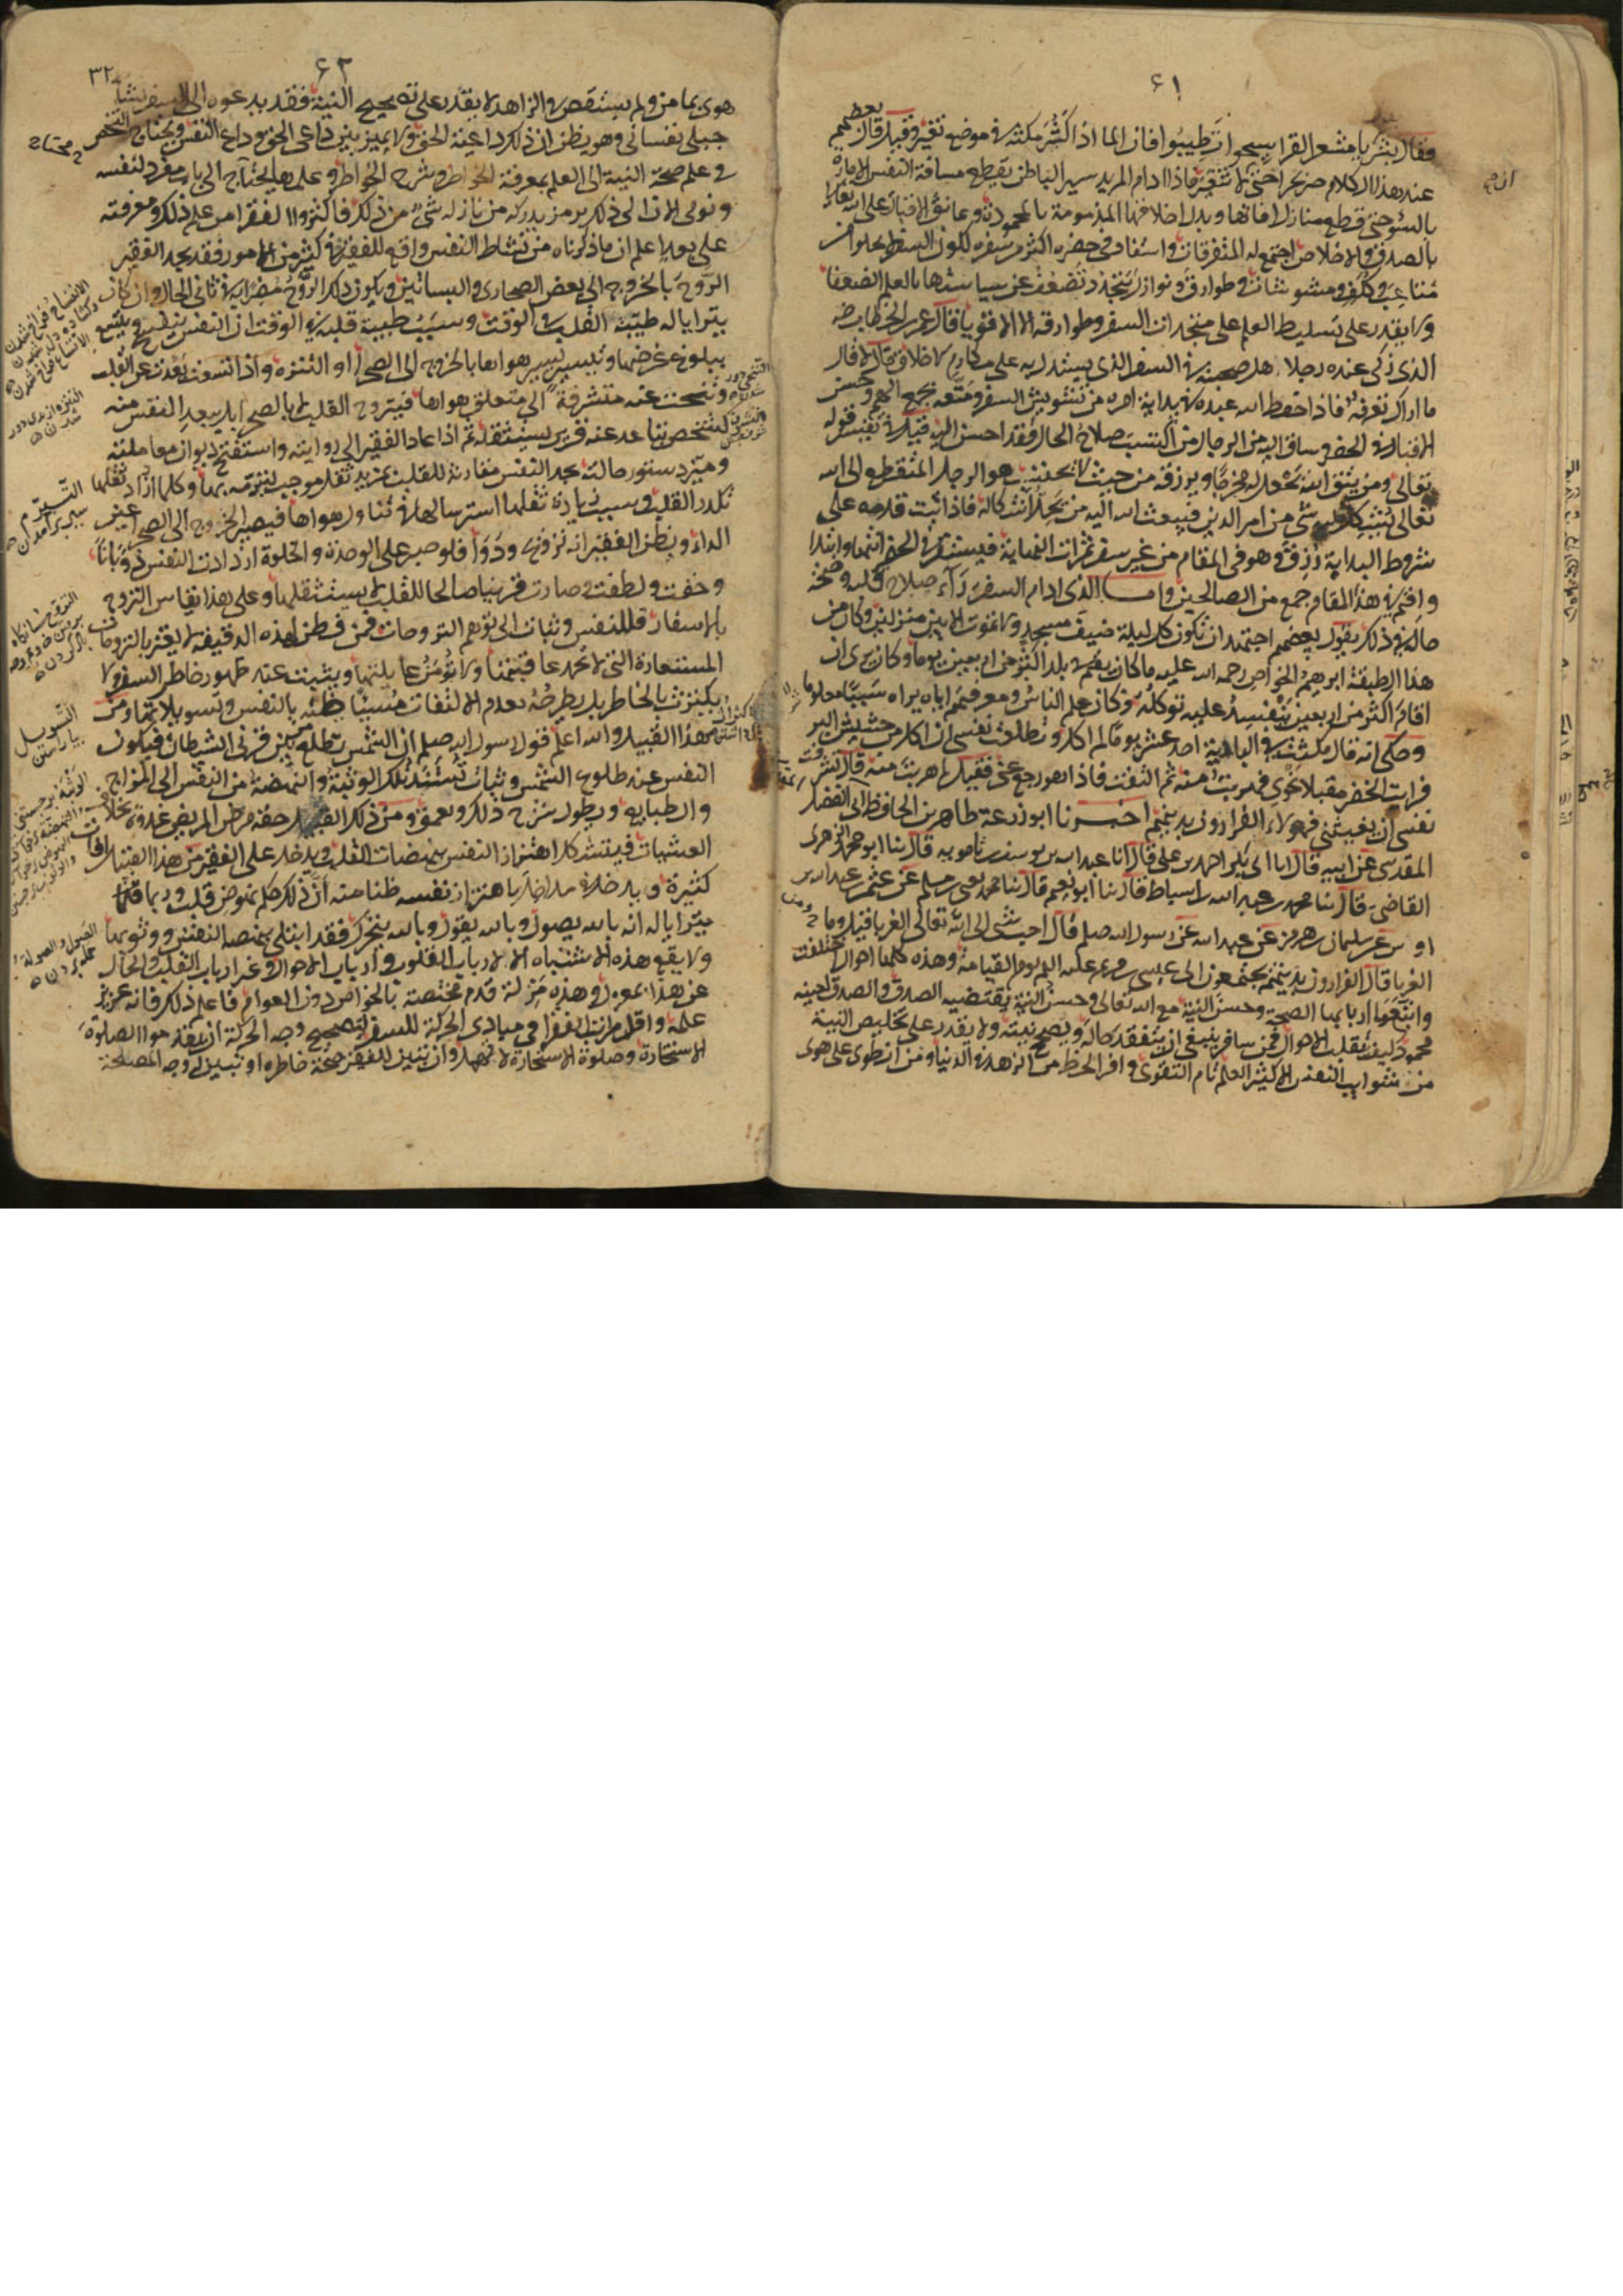 ٤١
فقال بشر يا معشر القرا سيحوا تطيبوا فان الما اذا كثر مكثه في موضع تغير وقيل قال بعضهم
عند هذا الكلام صر بحرا حتى لا تتغير فاذا ادام المريد سير الباطن بقطع مسافة النفس الامارة
بالسوء حتى قطع منازل افاتها وبدل اخلاقها المذمومة بالمحمودة وعانق الاقبال على الله تعالى
بالصدق والاخلاص اجتمع له المتفرقات واستفاد في حضره اكثر من سفره لكون السفر لا يخلو من
متاعب وكلف ومشوشات وطوارق ونوازل يتجدد تضعف عن سياستها بالعلم الضعفا
ولا يقدر على تسليط العلم على متجددات السفر وطوارقه الا الاقويا قال عمر بن الخطاب رضه
الذي زكى عنده رجلا هل صحبته في السفر الذي يستدل به على مكارم الاخلاق قال لا قال
ما اراك تعرفه فاذا حفظ الله عبده في بداية امره من تشويش السفر ومتعه بجمع الهم وحسن
الاقبال في الحضر وساق اليه من الرجال من اكتسب صلاح الحال فقد احسن اليه قيل في تفسير قوله
تعالى ومن يتق الله يجعل له مخرجا ويرزقه من حيث لا يحتسب هو الرجل المنقطع الى الله
تعالى يشكل عليه شي من امر الدين فيبعث الله اليه من يحل اشكاله فاذا ثبت قدمه على
شروط البداية رزق وهو في المقام من غير سفر ثمرات النهاية فيستقر في الحضر انتها وابتدا
واقيم في هذا المقام جمع من الصالحين واما الذي ادام السفر راى صلاح قلبه وصحة
حاله في ذلك يقول بعضهم اجتهد ان تكون كل ليلة ضيف مسجد ولا تموت الا بين منزلين وكان من
هذا الطبقة ابرهيم الخواص رحمه الله عليه ما كان يقيم في بلد اكثر من اربعين يوما وكان يرى ان
اقام اكثر من اربعين يفسد عليه توكله وكان علم الناس ومعرفتهم اياه يراه سببا معلوما
وحكي انه قال مكثت في البادية احد عشر يوما لم اكل وتطلعت نفسي ان اكل من حشيش البر
فرايت الخضر مقبلا نحوي فهربت منه ثم التفت فاذا هو رجع عني فقيل لم هربت منه قال تشرفت
نفسي ان يغيثني فهولاء الفرارون بدينهم اخبرنا ابو زرعة طاهر بن الحافظ ابي الفضل
المقدسي عن ابيه قال انا ابي بكر احمد بن علي قال انا عبد الله بن يوسف بن نامويه قال ثنا ابو محمد الزهري
القاضي قال ثنا محمد بن عبد الله بن اسباط قال ثنا ابو نعيم قال ثنا محمد يعني بن مسلم عن عثمن بن عبد الله بن
اوس عن سليمان بن هرمز عن عبد الله عن رسول الله صلعم قال احب شي الى الله تعالى الغربا قيل وما
الغربا قال الفرارون بدينهم يجتمعون الى عيسى بن مريم عليه السلم يوم القيامة وهذه كلها احوال اختلفت
واتبع اربابها الصحة وحسن النية مع الله تعالى وحسن النية يقتضيه الصدق والصدق لعينه
محمود كيف تقلبت الاحوال فمن سافر ينبغي ان يتفقد حاله ويصحح نيته ولا يقدر على تخليص النية
من شوايب النفس الا كثير العلم تام التقوى وافر الحظ من الزهد في الدنيا ومن انطوى على هوى
٣٢
٤٢
هوى بما من ولم يستقص في الزاهد لا يقدر على تصحيح النية فقد يدعوه الى السفر نشاط
جبلي نفساني وهو يظن ان ذلك داعية الحق ولا يميز بين داعي الحق وداعي النفس ويحتاج الشخص
في علم صحة النية الى العلم بمعرفة الخواطر وشرح الخواطر وعلمها يحتاج الى باب مفرد لنفسه
ونومي الان الى ذلك برمز يدركه من نازله شي من ذلك فاكثر الفقرا من علم ذلك ومعرفته
على بعد اعلم ان ما ذكرناه من نشاط النفس واقع للفقير في كثير من الامور فقد يجد الفقير
الروح بالخروج الى بعض الصحاري والبساتين ويكون ذلك الروح مضرا به في ثاني الحال وان كان
يترايا له طيبة القلب في الوقت وسبب طيبة قلبه في الوقت ان النفس تنفسح وتتسع
ببلوغ غرضها وتيسير يسير هواها بالخروج الى الصحرا او التنزه واذا اتسعت بعدت عن القلب
وتنحت عنه متشرفة الى متعلق هواها فيتروح القلب لا بالصحرا بل ببعد النفس منه
كشخص تباعد عنه قرين يستثقله ثم اذا عاد الفقير الى زاويته واستفتح ديوان معاملته
وميز دستور حاله يجد النفس مقارنة للقلب بمزيد ثقل موجب لتبرمه بها وكلما ازداد ثقلها
تكدر القلب وسبب زيادة ثقلها استرسالها في تناول هواها فيصير الخروج الى الصحرا عين
الداء ويظن الفقير انه تروح ودوا فلو صبر على الوحدة والخلوة ازدادت النفس ذوبانا
وخفت ولطفت وصارت قرينا صالحا للقلب لا يستثقلها وعلى هذا يقاس التروح
بالاسفار فللنفس وثبات الى توهم التروحات فمن فطن لهذه الدقيقة لا يغتر بالتروحات
المستعارة التي لا تحمد عاقبتها ولا تؤمن غايلتها ويتثبت عند ظهور خاطر السفر ولا
يكترث بالخاطر بل يطرحه بعدم الالتفات مسيئا ظنه بالنفس وتسويلاتها ومن
هذا القبيل والله اعلم قول رسول الله صلعم ان الشمس تطلع بين قرني الشيطان فيكون
النفس عند طلوع الشمس وثبات تستند تلك الوثبة والنهضة من النفس الى المزاج
والطبايع ويطول شرح ذلك وتعمق ومن ذلك القبيل خفة مرض المريض غدوة بخلاف
العشيات فيتشكل اهتزاز النفس بنهضات القلب ويدخل على الفقير من هذا القبيل افات
كثيرة ويدخل في مداخل باهتزاز نفسه ظنا منه ان ذلك حكم نهوض قلبه وربما
يترايا له انه بالله يصول وبالله يقول وبالله يتحرك فقد ابتلي بنهضة النفس ووثوبها
ولا يقع هذه الاشتباه الا لارباب القلوب وارباب الاحوال وغير ارباب القلب والحال
عن هذا بمعزل وهذه مزلة قدم مختصة بالخواص دون العوام فاعلم ذلك فانه عزيز
علمه واقل مراتب الفقرا في مبادي الحركة للسفر لتصحيح وجه الحركة ان يقدموا صلوة
الاستخارة وصلوة الاستخارة لا تهمل وان تبين للفقير صحة خاطره او تبين له وجه المصلحة